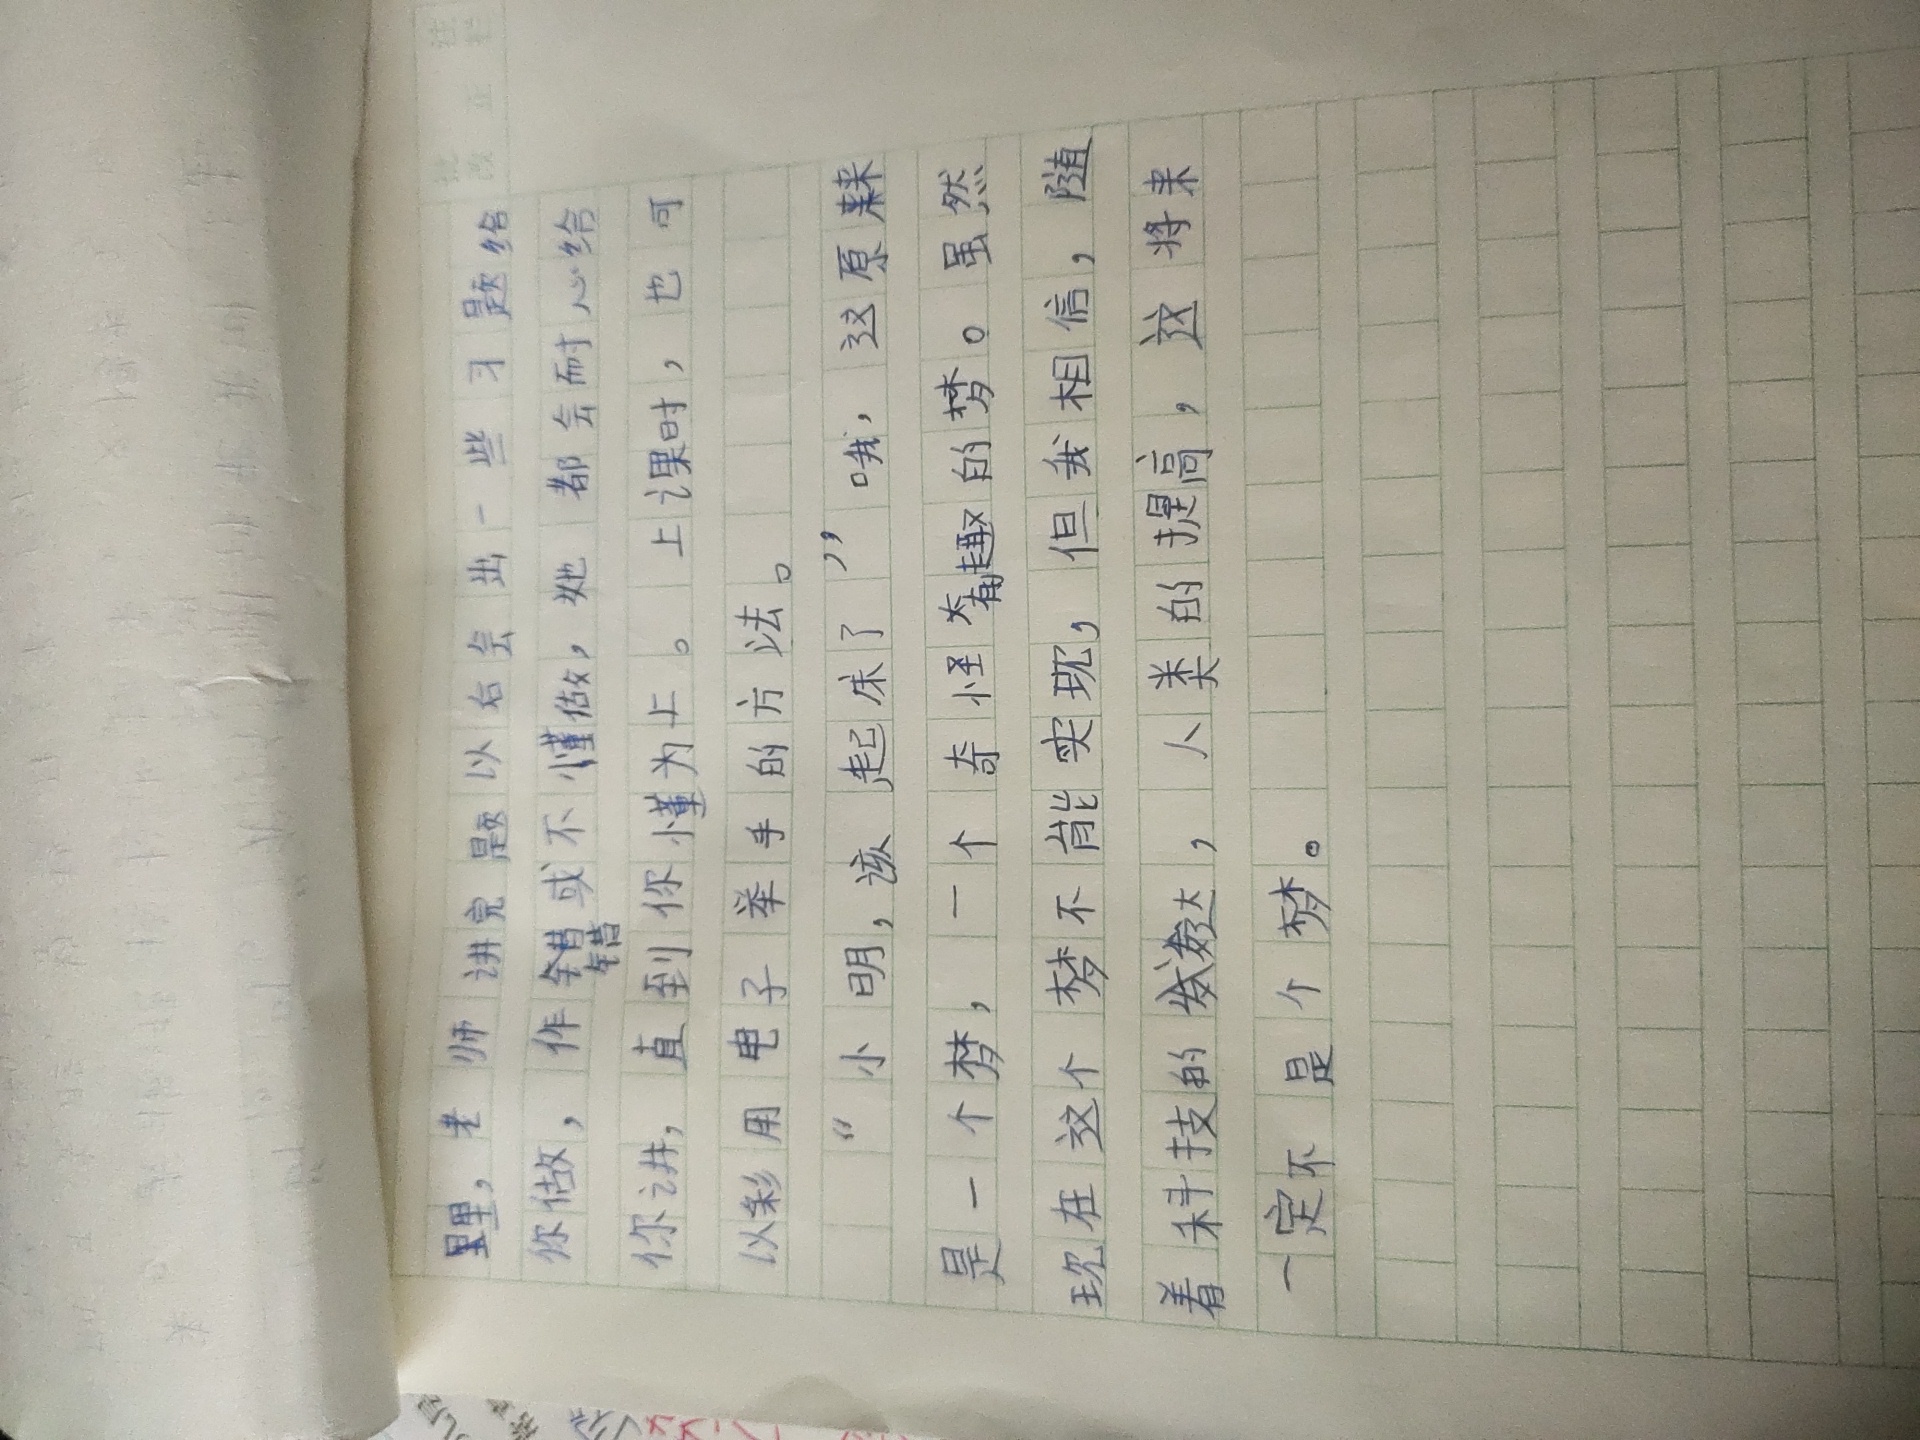 批改 正 栏
里，老师讲完题以后会出一些习题给
你做，作错或不懂做，她都会耐心给
你讲，直到你懂为上。上课时，也可
以彩用电子举手的方法。
“小明，该起床了”哦，这原来
是一个梦，一个奇怪有趣的梦。虽然
现在这个梦不能实现，但我相信，随
着科技的发达，人类的提高，这将来
一定不是个梦。